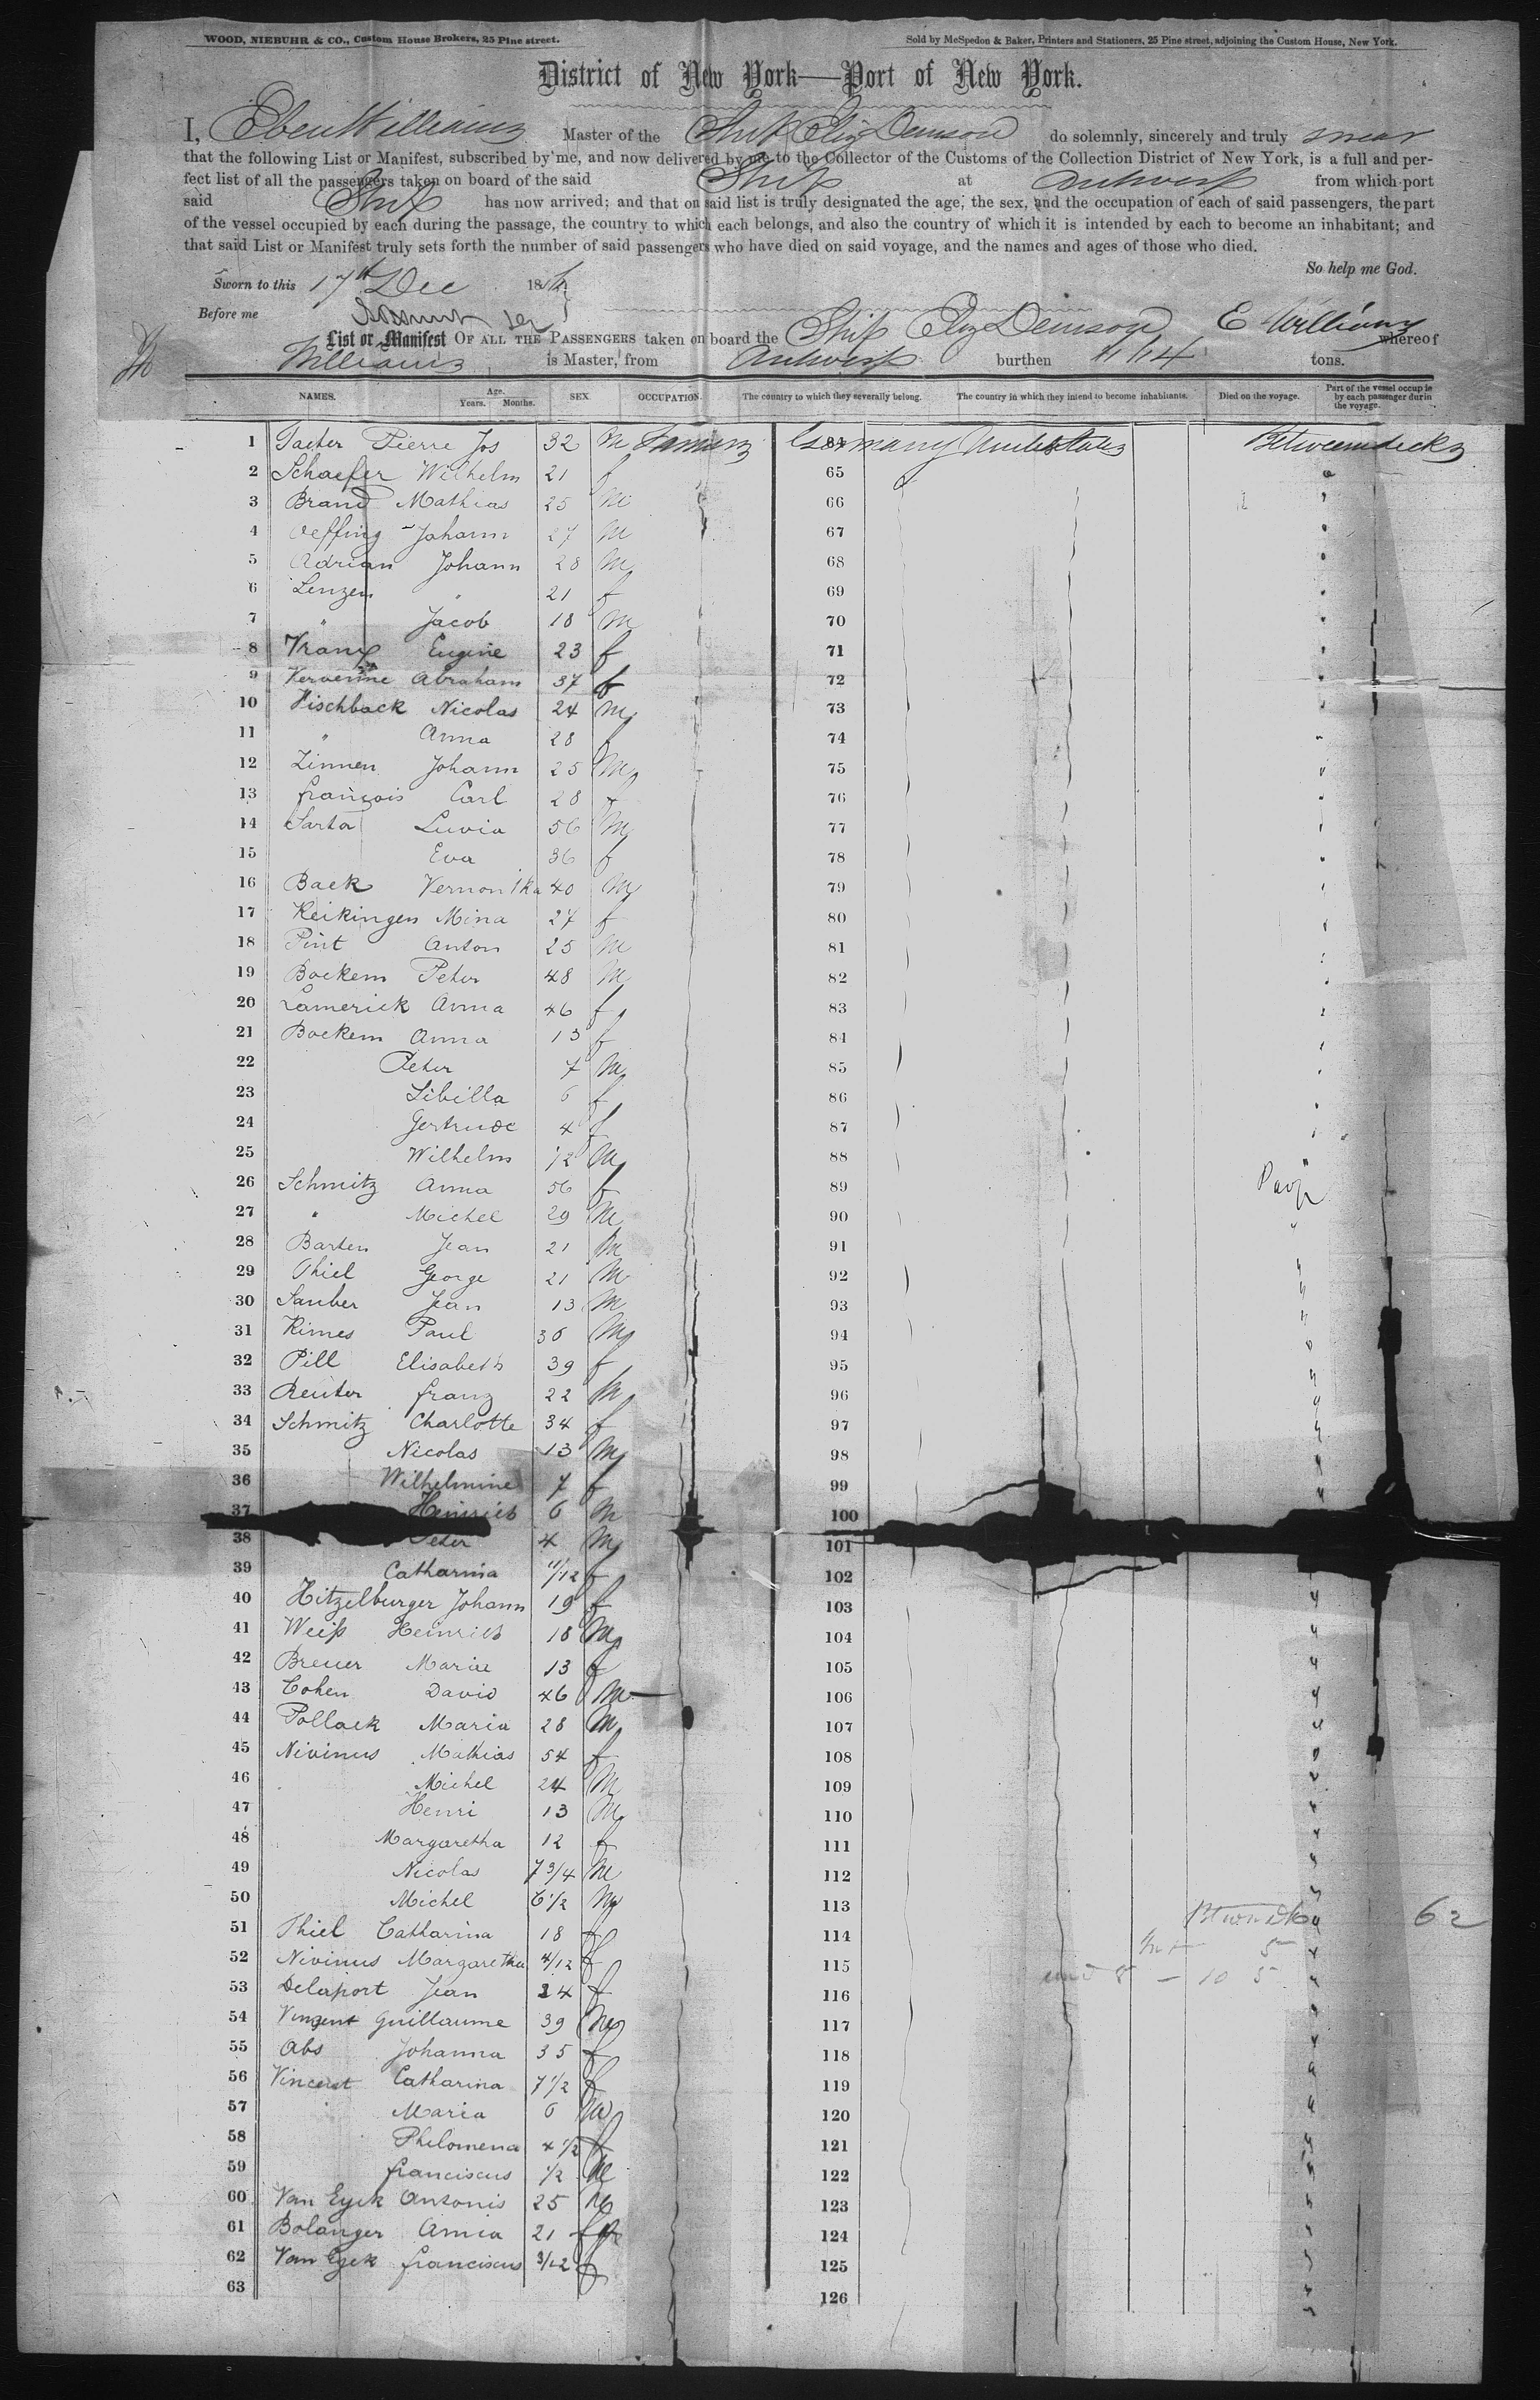 WOOD, NIEBUHR & CO., Custom House Brokers, 25 Pine street.
Sold by McSpedon & Baker, Printers and Stationers, 25 Pine street, adjoining the Custom House, New York.
District of New York—Port of New York.
I, Eben Williams Master of the Ship Eliz Denison do solemnly, sincerely and truly swear
that the following List or Manifest, subscribed by me, and now delivered by me to the Collector of the Customs of the Collection District of New York, is a full and per-
fect list of all the passengers taken on board of the said Ship at Antwerp from which port
said Ship has now arrived; and that on said list is truly designated the age, the sex, and the occupation of each of said passengers, the part
of the vessel occupied by each during the passage, the country to which each belongs, and also the country of which it is intended by each to become an inhabitant; and
that said List or Manifest truly sets forth the number of said passengers who have died on said voyage, and the names and ages of those who died.
So help me God.
Sworn to this 17th Dec 18
Before me
E Williams
List or Manifest OF ALL THE PASSENGERS taken on board the Ship Eliz Denison whereof
Williams is Master, from Antwerp burthen tons.
NAMES. Age. Years. Months. SEX. OCCUPATION. The country to which they severally belong. The country in which they intend to become inhabitants. Died on the voyage. Part of the vessel occupie by each passenger durin the voyage.
1 Pierre Jos 32 m Farmers 64 Germany United States Betweendecks
2 Schaefer Wilhelm 21 f 65
3 Brand Mathias 25 m 66
4 Oeffing Johann 27 m 67
5 Adrian Johann 28 m 68
6 Lenzen " 21 f 69
7 " Jacob 18 m 70
8 Eugine 23 f 71
9 Abraham 37 f 72
10 Hischback Nicolas 24 m 73
11 " Anna 28 f 74
12 Zinnen Johann 25 m 75
13 François Carl 28 f 76
14 Sarta Luvia 56 m 77
15 Eva 36 f 78
16 Back Vernonika 40 m 79
17 Keikingen Mina 27 f 80
18 Pint Anton 25 m 81
19 Bockem Peter 48 m 82
20 Lamerick Anna 46 f 83
21 Bockem Anna 13 f 84
22 Peter 7 m 85
23 Sibilla 6 f 86
24 Gertrude 4 f 87
25 Wilhelm 1/2 m 88
26 Schmitz Anna 56 f 89
27 " Michel 29 m 90
28 Barten Jean 21 m 91
29 Thiel George 21 m 92
30 Sauber Jean 13 m 93
31 Kimes Paul 36 m 94
32 Pill Elisabeth 39 f 95
33 Reuter Franz 22 m 96
34 Schmitz Charlotte 34 f 97
35 Nicolas 13 m 98
36 Wilhelmine 7 f 99
37 Heinrich 6 m 100
38 Peter 4 m 101
39 Catharina 11/12 f 102
40 Hitzelburger Johann 19 f 103
41 Weiß Heinrich 18 m 104
42 Breuer Marie 13 f 105
43 Cohen David 46 m 106
44 Pollack Maria 28 m 107
45 Nivinus Mathias 54 f 108
46 Michel 24 m 109
47 Henri 13 m 110
48 Margaretha 12 f 111
49 Nicolas 7 3/4 m 112
50 Michel 6 1/2 m 113
51 Thiel Catharina 18 f 114
52 Nivinus Margaretha 4/12 f 115
53 Delaport Jean 24 f 116
54 Vinzent Guillaume 39 m 117
55 Abs Johanna 35 f 118
56 Vincent Catharina 7 1/2 f 119
57 Maria 6 m 120
58 Philomena 4 1/2 f 121
59 Franciscus 1/2 m 122
60 Van Eyck Antonis 25 m 123
61 Bolanger Annia 21 f 124
62 Van Eyck Franciscus 3/12 f 125
63 126
62
5
10 5